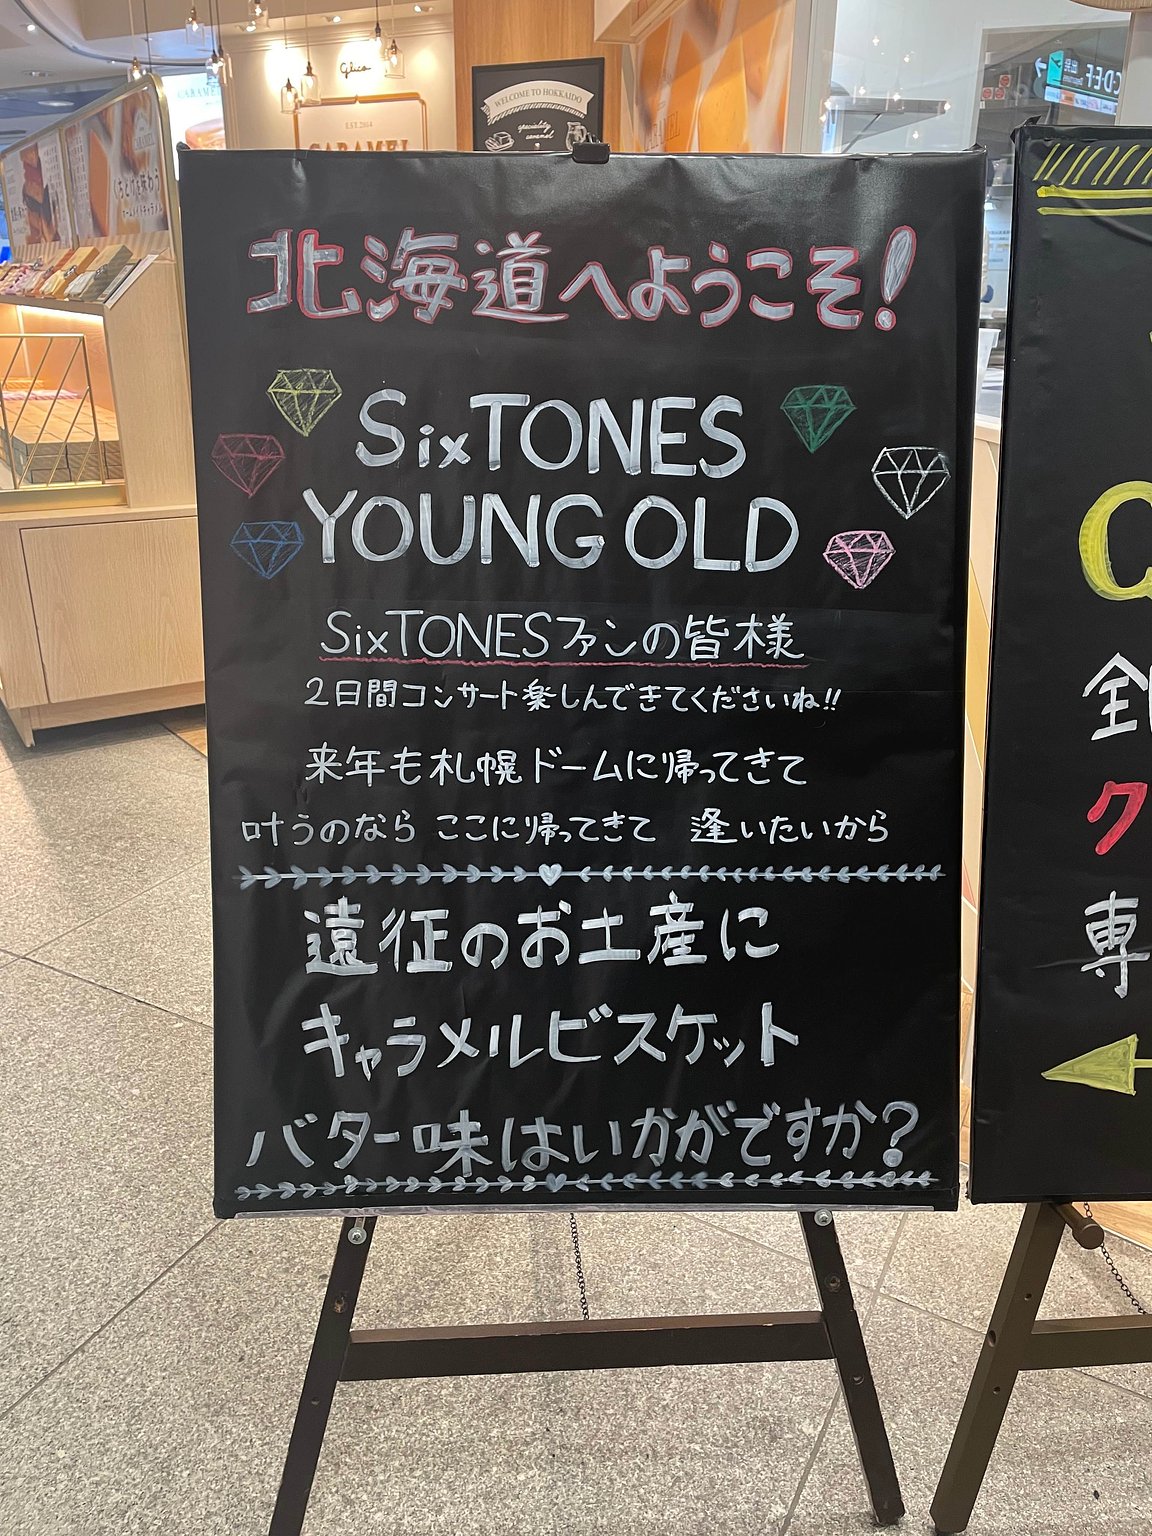 Glico
EST.2014
CARAMEL
WELCOME TO HOKKAIDO
speciality
caramel
CDEF
北海道へようこそ!
SixTONES
YOUNG OLD
SixTONESファンの皆様
2日間コンサート楽しんできてくださいね!!
来年も札幌ドームに帰ってきて
叶うのなら ここに帰ってきて 逢いたいから
遠征のお土産に
キャラメルビスケット
バター味はいかがですか?
ク
専